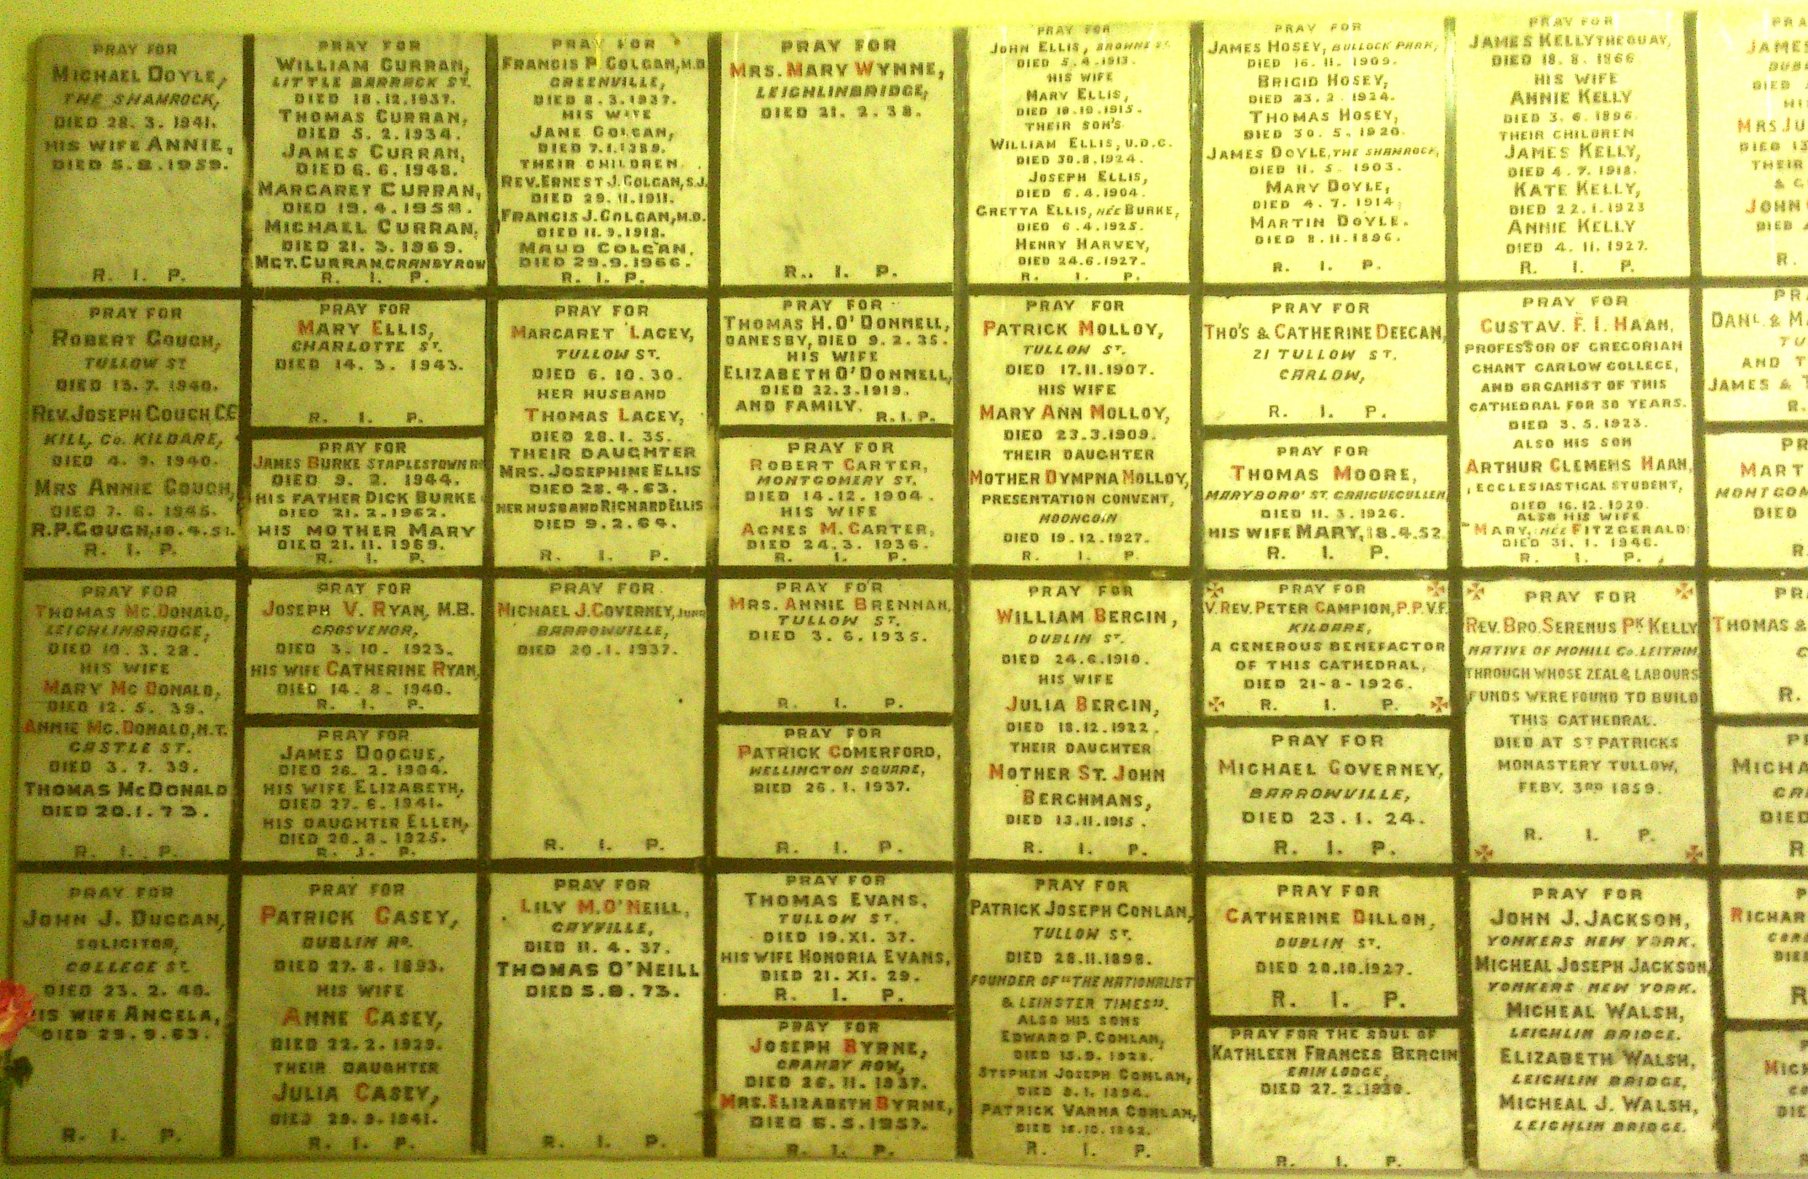 PRAY FOR
MICHAEL DOYLE,
THE SHAMROCK,
DIED 28. 3. 1941.
HIS WIFE ANNIE,
DIED 5.8.1959.
R. I. P.
PRAY FOR
WILLIAM CURRAN,
LITTLE BARRACK ST.
DIED 18.12.1937.
THOMAS CURRAN,
DIED 5. 2. 1934.
JAMES CURRAN,
DIED 6. 6. 1948.
MARGARET CURRAN,
DIED 19. 4. 1958.
MICHAEL CURRAN,
DIED 21. 3. 1969.
MGT. CURRAN, GRANBY ROW
R. I. P.
PRAY FOR
FRANCIS P. COLGAN, M.B.
GREENVILLE,
DIED 8. 3. 1937.
HIS WIFE
JANE COLGAN,
DIED 7.1.1389.
THEIR CHILDREN
REV. ERNEST J. COLGAN, S.J.
DIED 29. 11. 1911.
FRANCIS J. COLGAN, M.B.
DIED 11. 9. 1918.
MAUD COLGAN,
DIED 29.9.1966.
R. I. P.
PRAY FOR
MRS. MARY WYNNE,
LEICHLINBRIDGE,
DIED 21. 2. 38.
R. I. P.
PRAY FOR
JOHN ELLIS, BROWNE ST.
DIED 5. 4. 1913.
HIS WIFE
MARY ELLIS,
DIED 10.10.1915.
THEIR SON'S
WILLIAM ELLIS, U.D.C.
DIED 30.8.1924.
JOSEPH ELLIS,
DIED 6.4.1904.
GRETTA ELLIS, NÉE BURKE,
DIED 6.4.1925.
HENRY HARVEY,
DIED 24.6.1927.
R. I. P.
PRAY FOR
JAMES HOSEY, BULLOCK PARK,
DIED 16. 11. 1909.
BRIGID HOSEY,
DIED 23. 2 . 1924.
THOMAS HOSEY,
DIED 30. 5. 1920.
JAMES DOYLE, THE SHAMROCK,
DIED 11. 5. 1903.
MARY DOYLE,
DIED 4. 7. 1914.
MARTIN DOYLE.
DIED 8.11.1896.
R. I. P.
PRAY FOR
JAMES KELLY THE QUAY,
DIED 18. 8. 1866
HIS WIFE
ANNIE KELLY
DIED 3. 6. 1896.
THEIR CHILDREN
JAMES KELLY,
DIED 4. 7. 1918.
KATE KELLY,
DIED 22.1.1923
ANNIE KELLY
DIED 4. 11. 1927.
R. I. P.
PRA
JAMES
HI
MRS. JU
DIED 13
THEIR
JOHN
DIED
R.
PRAY FOR
ROBERT GOUGH,
TULLOW ST
DIED 13. 7. 1940.
REV. JOSEPH GOUGH C.C.
KILL, Co. KILDARE,
DIED 4. 9. 1940.
MRS ANNIE GOUGH,
DIED 7. 6. 1945.
R.P. GOUGH, 16.4.51.
R. I. P.
PRAY FOR
MARY ELLIS,
CHARLOTTE ST.
DIED 14. 3. 1943.
R. I. P.
PRAY FOR
JAMES BURKE STAPLESTOWN RD
DIED 9. 2. 1944.
HIS FATHER DICK BURKE
DIED 21.2.1962.
HIS MOTHER MARY
DIED 21.11.1969.
R. I. P.
PRAY FOR
MARGARET LACEY,
TULLOW ST.
DIED 6. 10. 30.
HER HUSBAND
THOMAS LACEY,
DIED 28. 1. 35.
THEIR DAUGHTER
MRS. JOSEPHINE ELLIS
DIED 28.4.63.
HER HUSBAND RICHARD ELLIS
DIED 9.2.64.
R. I. P.
PRAY FOR
THOMAS H. O'DONNELL,
DANESBY, DIED 9. 2. 35.
HIS WIFE
ELIZABETH O'DONNELL,
DIED 22.3.1919.
AND FAMILY.
R.I.P.
PRAY FOR
ROBERT CARTER,
MONTGOMERY ST.
DIED 14.12. 1904.
HIS WIFE
AGNES M. CARTER,
DIED 24.3. 1936.
R. I. P.
PRAY FOR
PATRICK MOLLOY,
TULLOW ST.
DIED 17.11.1907.
HIS WIFE
MARY ANN MOLLOY,
DIED 23.3.1909.
THEIR DAUGHTER
MOTHER DYMPNA MOLLOY,
PRESENTATION CONVENT,
MOONCOIN
DIED 19.12.1927.
R. I. P.
PRAY FOR
THO'S & CATHERINE DEEGAN,
21 TULLOW ST.
CARLOW,
R. I. P.
PRAY FOR
THOMAS MOORE,
MARYBORO' ST. GRAIGUECULLEN
DIED 11. 3. 1926.
HIS WIFE MARY, 18.4.52
R. I. P.
PRAY FOR
GUSTAV. F. I. HAAN,
PROFESSOR OF GREGORIAN
CHANT CARLOW COLLEGE,
AND ORGANIST OF THIS
CATHEDRAL FOR 38 YEARS.
DIED 3. 5. 1923.
ALSO HIS SON
ARTHUR CLEMENS HAAN,
ECCLESIASTICAL STUDENT,
DIED 16.12. 1920.
ALSO HIS WIFE
MARY, NÉE FITZGERALD:
DIED 31. 1. 1946.
R. I. P.
PRA
DANL. & M
TU
AND T
JAMES & T
R.
PR
MART
MONTGOM
DIED
R.
PRAY FOR
THOMAS MC. DONALD,
LEICHLINBRIDGE,
DIED 10. 3. 28.
HIS WIFE
MARY MC DONALD,
DIED 12. 5. 39.
ANNIE MC. DONALD, N.T.
CASTLE ST.
DIED 3. 7. 39.
THOMAS MCDONALD
DIED 20.1.73.
R. I. P.
PRAY FOR
JOSEPH V. RYAN, M.B.
GROSVENOR,
DIED 3. 10. 1923.
HIS WIFE CATHERINE RYAN,
DIED 14. 8. 1940.
R. I. P.
PRAY FOR
JAMES DOOGUE,
DIED 26. 2. 1904.
HIS WIFE ELIZABETH,
DIED 27. 6. 1941.
HIS DAUGHTER ELLEN,
DIED 20.8.1925.
R. I. P.
PRAY FOR
MICHAEL J. GOVERNEY, JUNR
BARROWVILLE,
DIED 20.1.1937.
R. I. P.
PRAY FOR
MRS. ANNIE BRENNAN,
TULLOW ST.
DIED 3. 6. 1935.
R. I. P.
PRAY FOR
PATRICK COMERFORD,
WELLINGTON SQUARE,
DIED 26.1.1937.
R. I. P.
PRAY FOR
WILLIAM BERGIN,
DUBLIN ST.
DIED 24.6.1910.
HIS WIFE
JULIA BERGIN,
DIED 18.12.1922.
THEIR DAUGHTER
MOTHER ST. JOHN
BERCHMANS,
DIED 13.11.1915.
R. I. P.
PRAY FOR
V. REV. PETER CAMPION, P.P. V.F.
KILDARE,
A GENEROUS BENEFACTOR
OF THIS CATHEDRAL,
DIED 21-8-1926.
R. I. P.
PRAY FOR
MICHAEL GOVERNEY,
BARROWVILLE,
DIED 23. 1. 24.
R. I. P.
PRAY FOR
REV. BRO. SERENUS PK KELLY
NATIVE OF MOHILL Co. LEITRIM,
THROUGH WHOSE ZEAL & LABOURS
FUNDS WERE FOUND TO BUILD
THIS CATHEDRAL.
DIED AT ST PATRICKS
MONASTERY TULLOW,
FEBY. 3RD 1859.
R. I. P.
PR
THOMAS &
R.
PR
MICHA
DIED
R
PRAY FOR
JOHN J. DUGGAN,
SOLICITOR,
COLLEGE ST.
DIED 23. 2. 40.
HIS WIFE ANGELA,
DIED 29.9.63.
R. I. P.
PRAY FOR
PATRICK CASEY,
DUBLIN RD.
DIED 27. 8. 1893.
HIS WIFE
ANNE CASEY,
DIED 22.2.1929.
THEIR DAUGHTER
JULIA CASEY,
DIED 29.9.1941.
R. I. P.
PRAY FOR
LILY M. O'NEILL,
GAYVILLE,
DIED 11. 4. 37.
THOMAS O'NEILL
DIED 5.8.73.
R. I. P.
PRAY FOR
THOMAS EVANS,
TULLOW ST.
DIED 19. XI. 37.
HIS WIFE HONORIA EVANS,
DIED 21. XI. 29.
R. I. P.
PRAY FOR
JOSEPH BYRNE,
GRANBY ROW,
DIED 26. 11. 1937.
MRS. ELIZABETH BYRNE,
DIED 6.5.1957.
R. I. P.
PRAY FOR
PATRICK JOSEPH CONLAN,
TULLOW ST.
DIED 28.11.1898.
FOUNDER OF "THE NATIONALIST
& LEINSTER TIMES".
ALSO HIS SONS
EDWARD P. CONLAN,
DIED 15.9.1928.
STEPHEN JOSEPH CONLAN,
DIED 8.1.1894.
PATRICK VARNA CONLAN,
R. I. P.
PRAY FOR
CATHERINE DILLON,
DUBLIN ST.
DIED 20.10.1927.
R. I. P.
PRAY FOR THE SOUL OF
KATHLEEN FRANCES BERGIN
ERINLODGE,
DIED 27.2.1939.
R. I. P.
PRAY FOR
JOHN J. JACKSON,
YONKERS NEW YORK.
MICHEAL JOSEPH JACKSON,
YONKERS NEW YORK.
MICHEAL WALSH,
LEIGHLIN BRIDGE.
ELIZABETH WALSH,
LEIGHLIN BRIDGE,
MICHEAL J. WALSH,
LEIGHLIN BRIDGE.
P
RICHAR
DIED
R
MICH
DIE